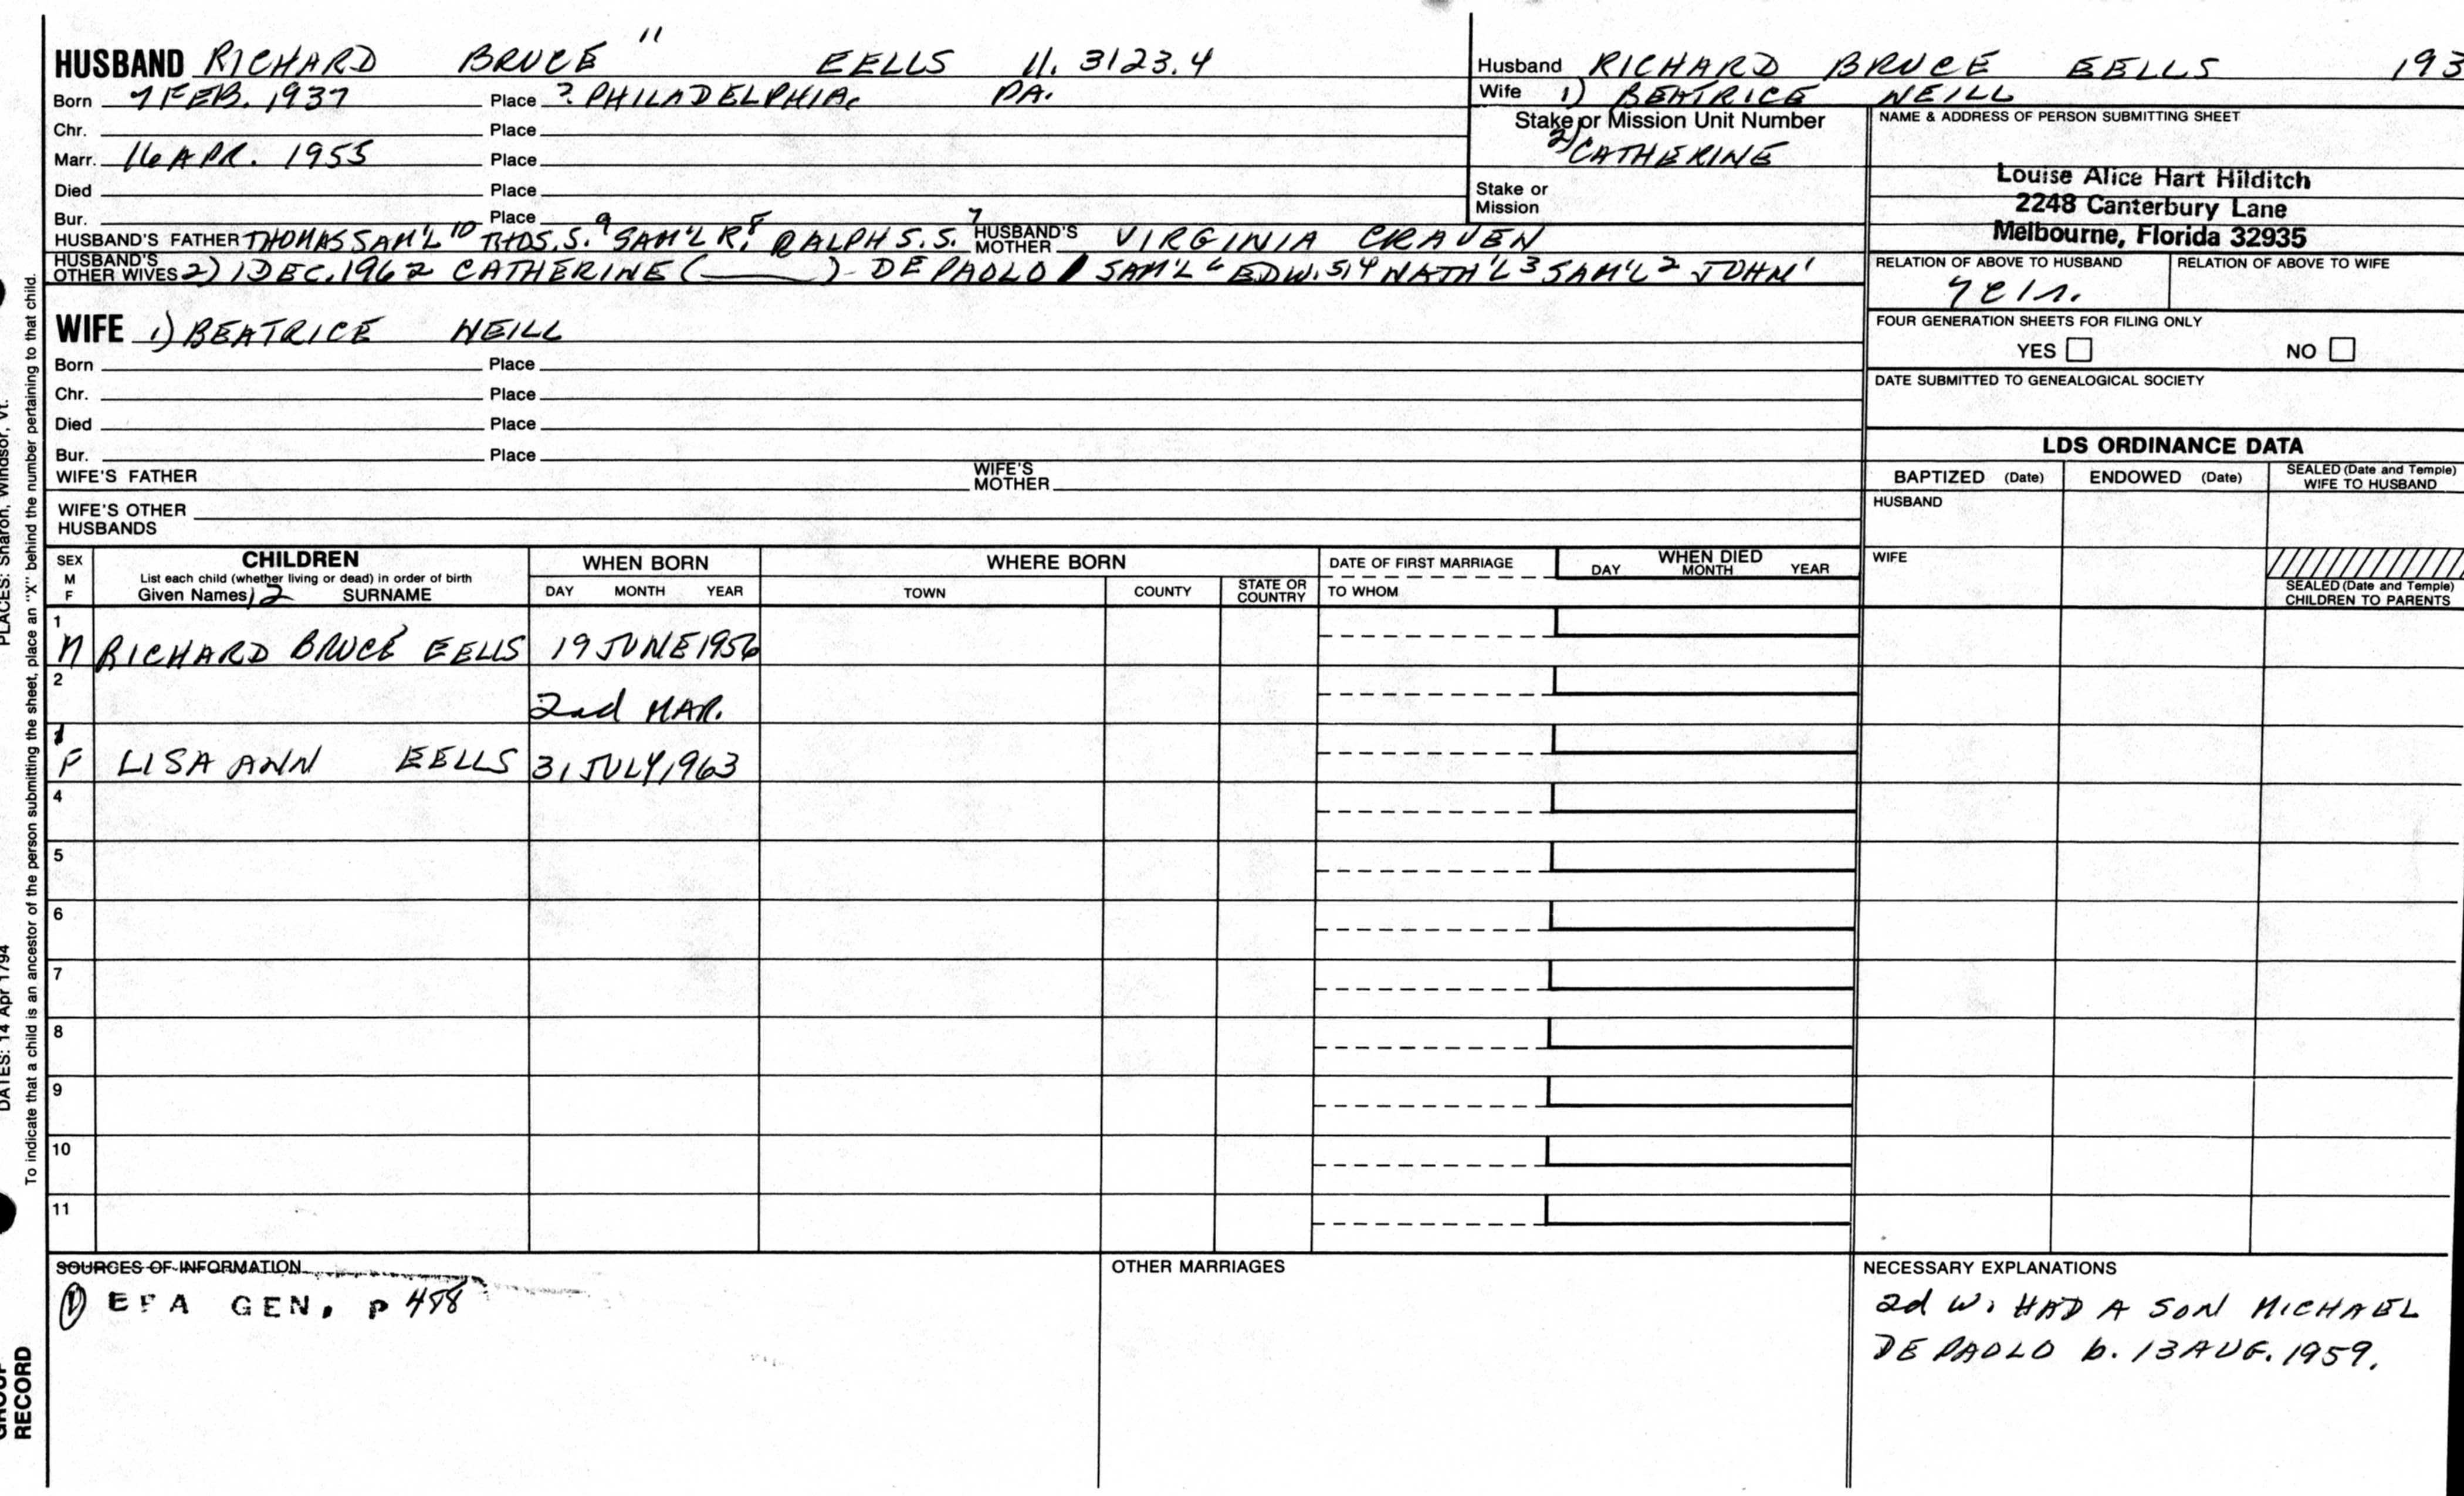 HUSBAND RICHARD BRUCE 11 EELLS 11. 3123.4
Born 7 FEB. 1937 Place ? PHILADELPHIA, PA.
Chr. Place
Marr. 16 APR. 1955 Place
Died Place
Bur. Place
HUSBAND'S FATHER THOMAS SAM'L 10 THOS. S. 9 SAM'L R. 8 RALPH S. S. 7 HUSBAND'S MOTHER VIRGINIA CRAVEN
HUSBAND'S OTHER WIVES 2) 1 DEC. 1962 CATHERINE ( ) DE PAOLO / SAM'L 6 EDW. 5,4 NATH'L 3 SAM'L 2 JOHN 1
Husband RICHARD BRUCE EELLS 193
Wife 1) BEATRICE NEILL
Stake or Mission Unit Number
2) CATHERINE
Stake or Mission
NAME & ADDRESS OF PERSON SUBMITTING SHEET
Louise Alice Hart Hilditch
2248 Canterbury Lane
Melbourne, Florida 32935
RELATION OF ABOVE TO HUSBAND RELATION OF ABOVE TO WIFE
FOUR GENERATION SHEETS FOR FILING ONLY
YES NO
DATE SUBMITTED TO GENEALOGICAL SOCIETY
WIFE 1) BEATRICE NEILL
Born Place
Chr. Place
Died Place
Bur. Place
WIFE'S FATHER WIFE'S MOTHER
WIFE'S OTHER HUSBANDS
LDS ORDINANCE DATA
BAPTIZED (Date) ENDOWED (Date) SEALED (Date and Temple) WIFE TO HUSBAND
HUSBAND
WIFE
SEALED (Date and Temple) CHILDREN TO PARENTS
SEX M F CHILDREN WHEN BORN WHERE BORN DATE OF FIRST MARRIAGE WHEN DIED
List each child (whether living or dead) in order of birth
Given Names 1 2 SURNAME DAY MONTH YEAR TOWN COUNTY STATE OR COUNTRY TO WHOM DAY MONTH YEAR
1
M RICHARD BRUCE EELLS 19 JUNE 1956
2
2nd MAR.
1
F LISA ANN EELLS 31 JULY 1963
4
5
6
7
8
9
10
11
SOURCES OF INFORMATION
① EFA GEN. P 478
OTHER MARRIAGES
NECESSARY EXPLANATIONS
2d W. HAD A SON MICHAEL
DE PAOLO b. 13 AUG. 1959.
PLACES: Sharon, Windsor, Vt.
DATES: 14 Apr 1794
To indicate that a child is an ancestor of the person submitting the sheet, place an "X" behind the number pertaining to that child.
GROUP
RECORD